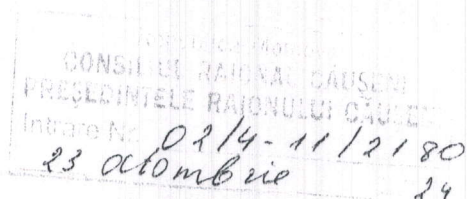 Republica Moldova
CONSILIUL RAIONAL CĂUȘENI
PREȘEDINTELE RAIONULUI CĂUȘENI
Intrare Nr. 02/4-11/2180
23 octombrie 24